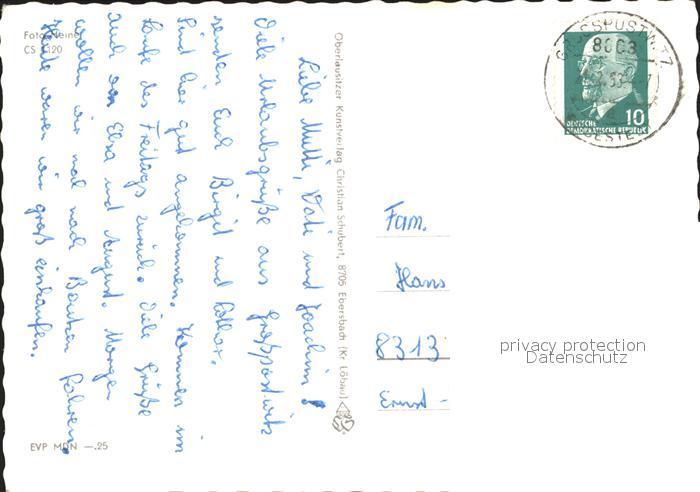 Foto Meiner
CS 1120
Liebe Mutti, Vati und Joachim!
Viele Urlaubsgrüße aus Großpostwitz
senden Euch Birgit und Lothar.
Sind hier gut angekommen. Kommen im
Laufe des Freitags zurück. Viele Grüße
auch an Elsa und August. Morgen
wollen wir mal nach Bautzen fahren.
Heute waren wir groß einkaufen.
EVP MDN —.25
Oberlausitzer Kunstverlag Christian Schubert, 8705 Ebersbach (Kr. Löbau)
GROSSPOSTWITZ
8603
10
DEUTSCHE
DEMOKRATISCHE REPUBLIK
Fam.
Hans
8313
Ernst-
privacy protection
Datenschutz